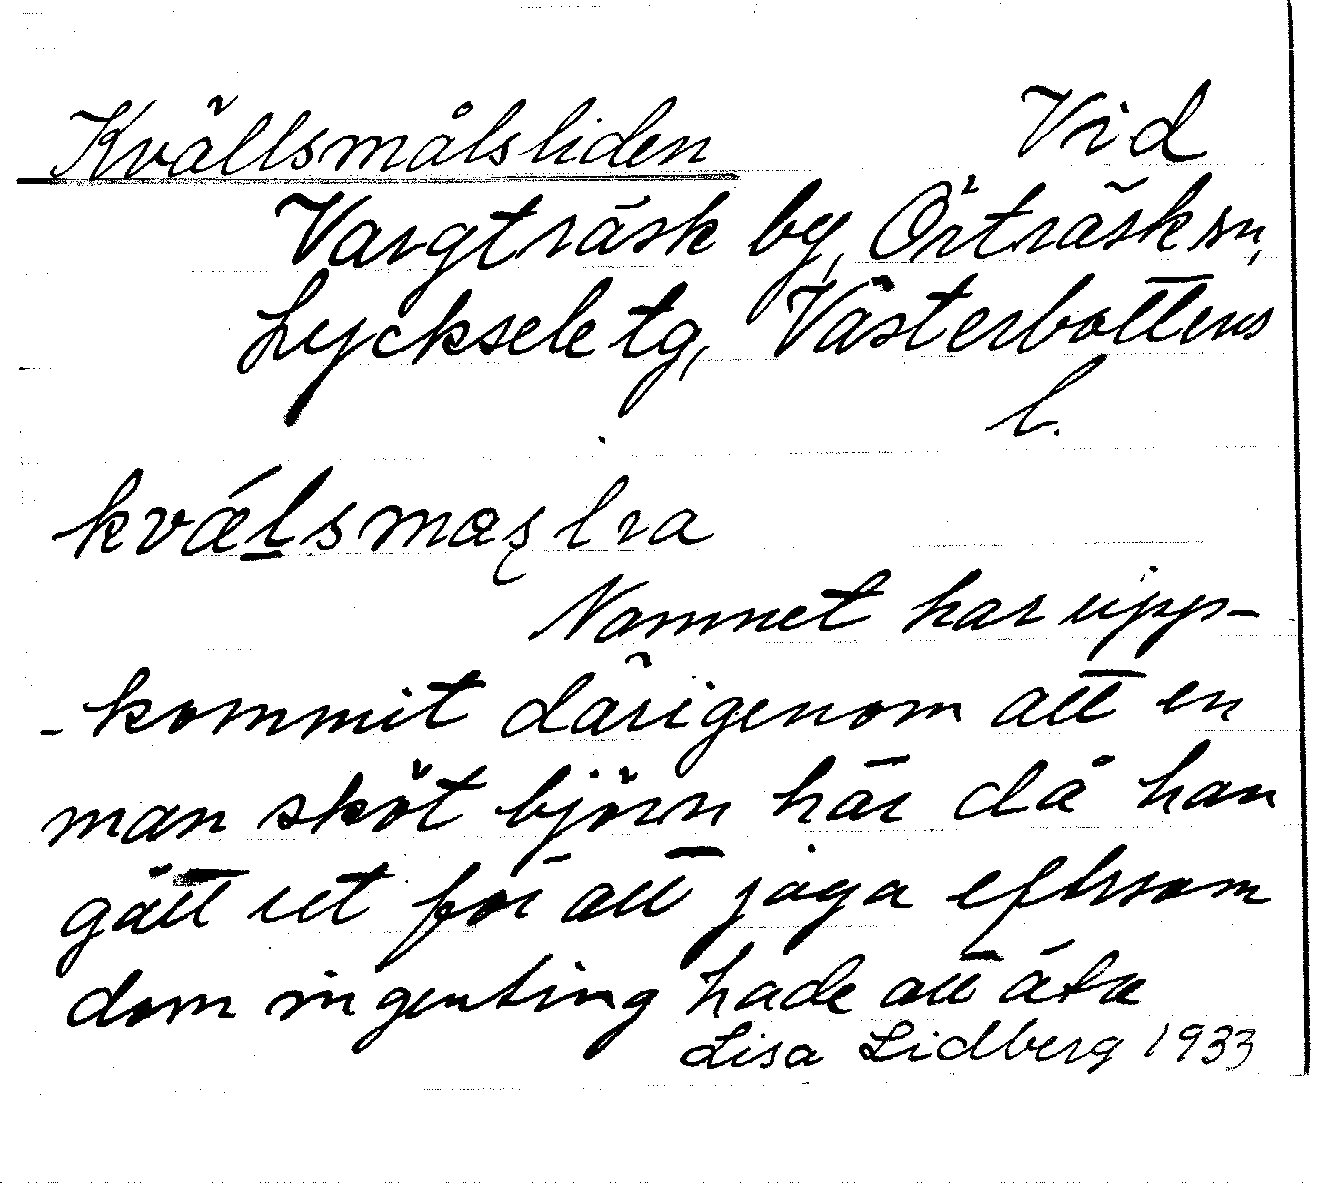 Kvällsmålsliden Vid
Vargträsk by, Örträsk sn,
Lycksele tg, Västerbottens
l.
kvǽlsmœʂlia
Namnet har upp-
-kommit därigenom att en
man sköt björn här då han
gått ut för att jaga eftersom
dom ingenting hade att äta
Lisa Lidberg 1933